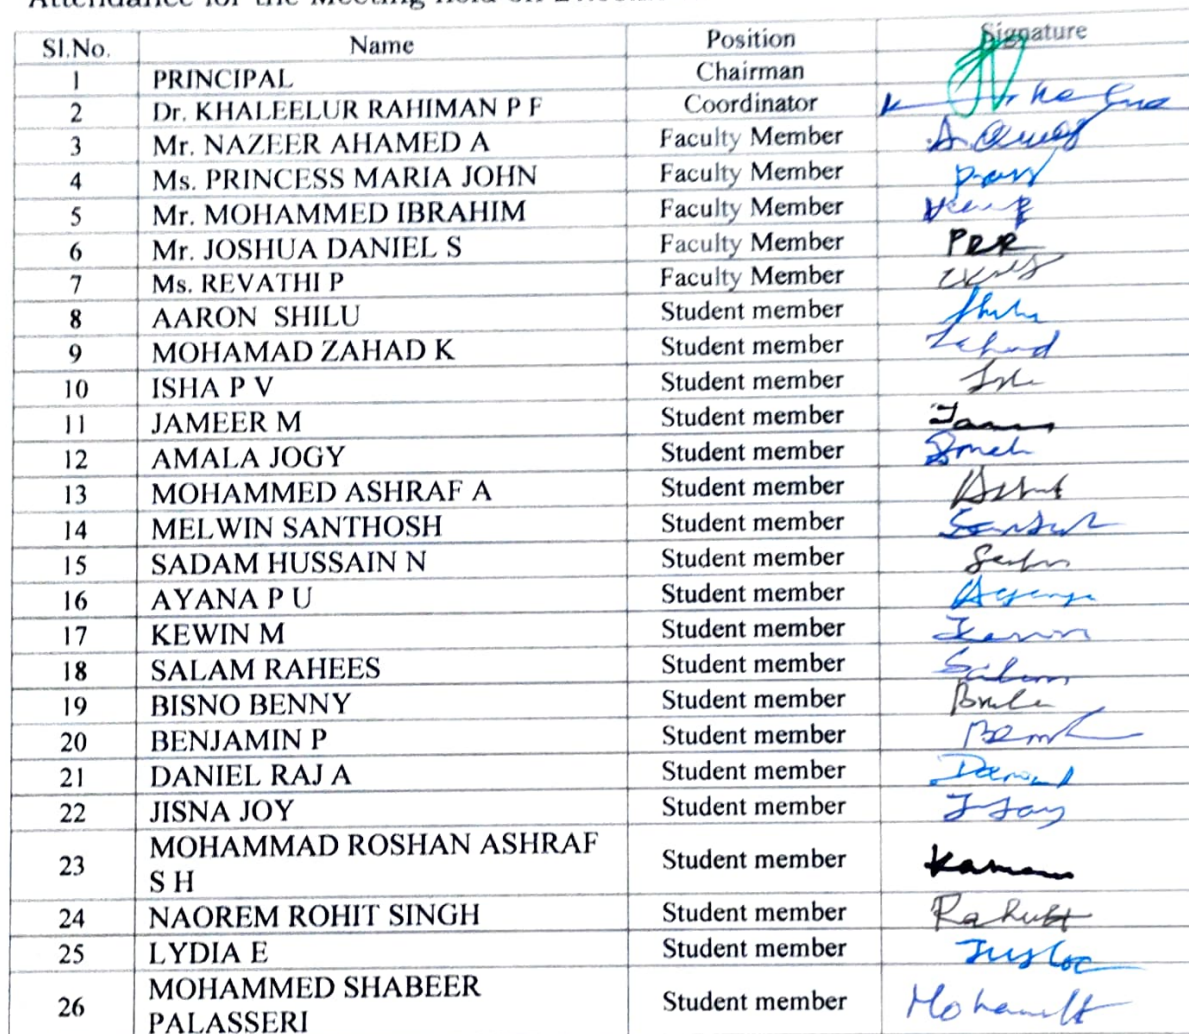 Attendance for the Meeting held on
Sl.No. Name Position Signature
1 PRINCIPAL Chairman
2 Dr. KHALEELUR RAHIMAN P F Coordinator
3 Mr. NAZEER AHAMED A Faculty Member
4 Ms. PRINCESS MARIA JOHN Faculty Member
5 Mr. MOHAMMED IBRAHIM Faculty Member
6 Mr. JOSHUA DANIEL S Faculty Member
7 Ms. REVATHI P Faculty Member
8 AARON SHILU Student member
9 MOHAMAD ZAHAD K Student member Zahad
10 ISHA P V Student member
11 JAMEER M Student member
12 AMALA JOGY Student member
13 MOHAMMED ASHRAF A Student member
14 MELWIN SANTHOSH Student member
15 SADAM HUSSAIN N Student member
16 AYANA P U Student member
17 KEWIN M Student member
18 SALAM RAHEES Student member
19 BISNO BENNY Student member
20 BENJAMIN P Student member
21 DANIEL RAJ A Student member
22 JISNA JOY Student member
23 MOHAMMAD ROSHAN ASHRAF
S H Student member
24 NAOREM ROHIT SINGH Student member
25 LYDIA E Student member
26 MOHAMMED SHABEER
PALASSERI Student member